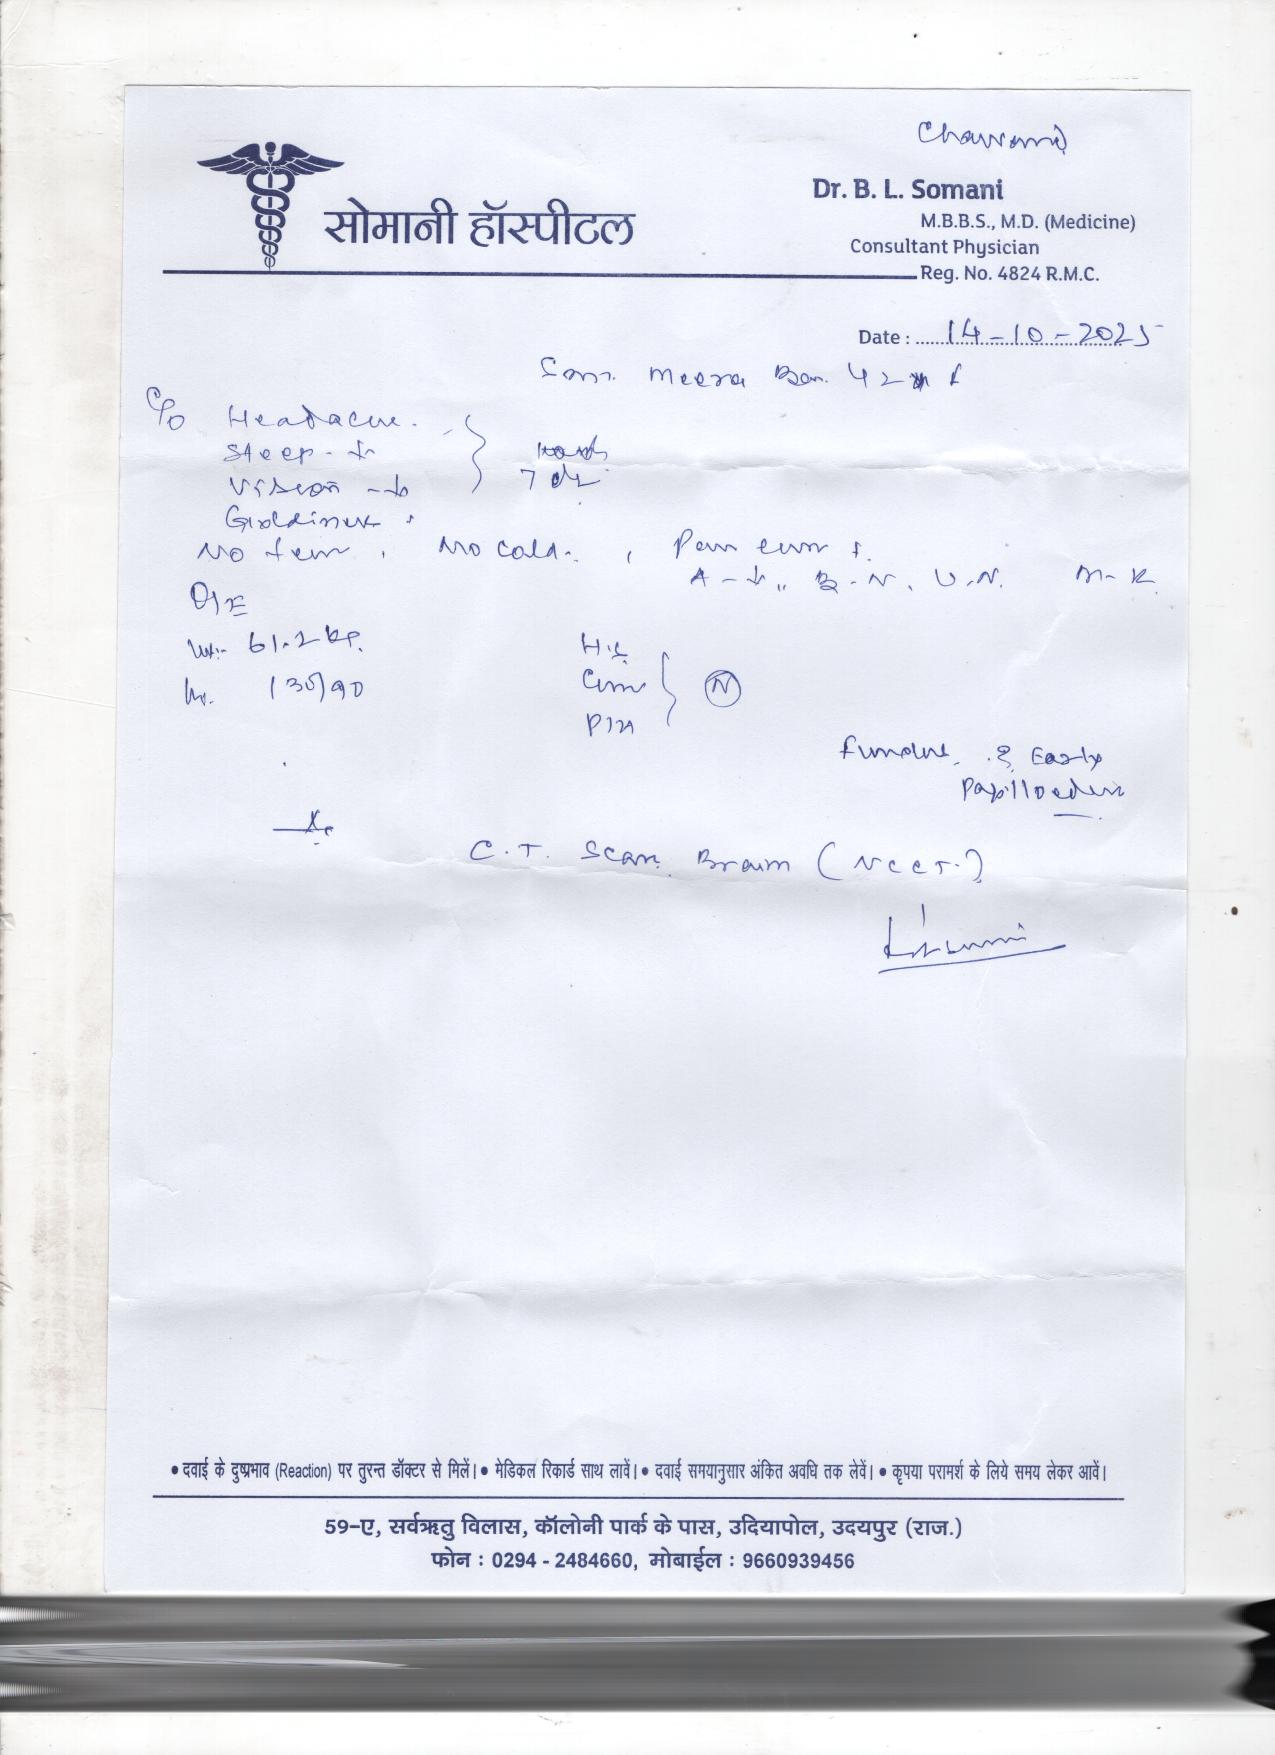 सोमानी हॉस्पीटल
Dr. B. L. Somani
M.B.B.S., M.D. (Medicine)
Consultant Physician
Reg. No. 4824 R.M.C.
Date : 14-10-2025
Meera 42 f
C/o Headache.
Sleep - ↓
Vision - ↓
7 d
No , No cold. , Pain
A - ↓ , B - N, U - N. M - R
O/E
Wt:- 61.2 kg.
130/90
H.S.
P/A
N
Fundus. ? Early
Papilloedema
C.T. Scan Brain (NCCT.)
• दवाई के दुष्प्रभाव (Reaction) पर तुरन्त डॉक्टर से मिलें। • मेडिकल रिकार्ड साथ लावें। • दवाई समयानुसार अंकित अवधि तक लेवें। • कृपया परामर्श के लिये समय लेकर आवें।
59-ए, सर्वऋतु विलास, कॉलोनी पार्क के पास, उदियापोल, उदयपुर (राज.)
फोन : 0294 - 2484660, मोबाईल : 9660939456